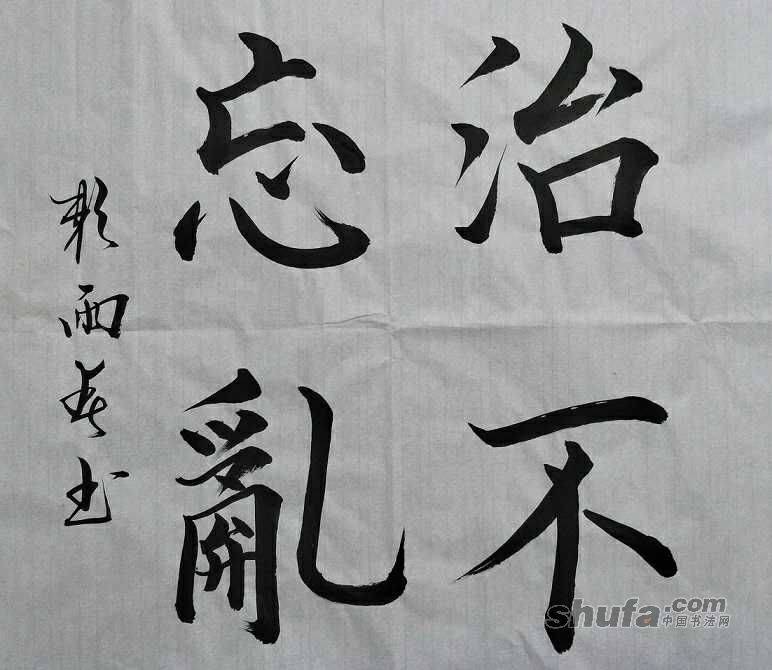 治不
忘亂
雨春书
shufa.com
中国书法网